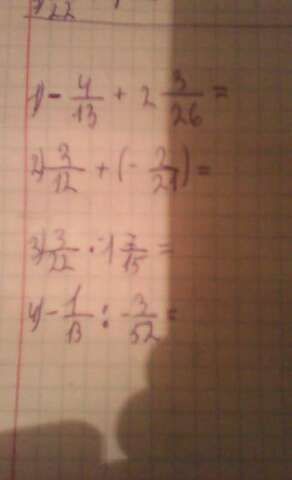 22
1) - 4/13 + 2 3/26 =
2) 3/12 + (- 2/21) =
3) 3/22 · 1 7/15 =
4) - 1/13 : 3/52 =